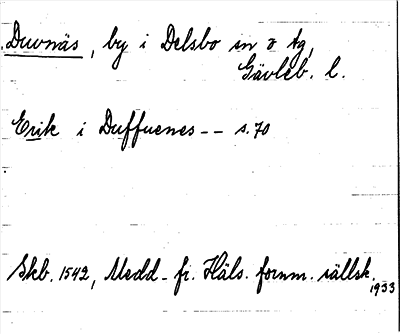 Duvnäs, by i Delsbo sn o tg,
Gävleb. l.
Erik i Duffuenes -- s. 70
Skb. 1542, Medd. fr. Häls. fornm. sällsk.
1933